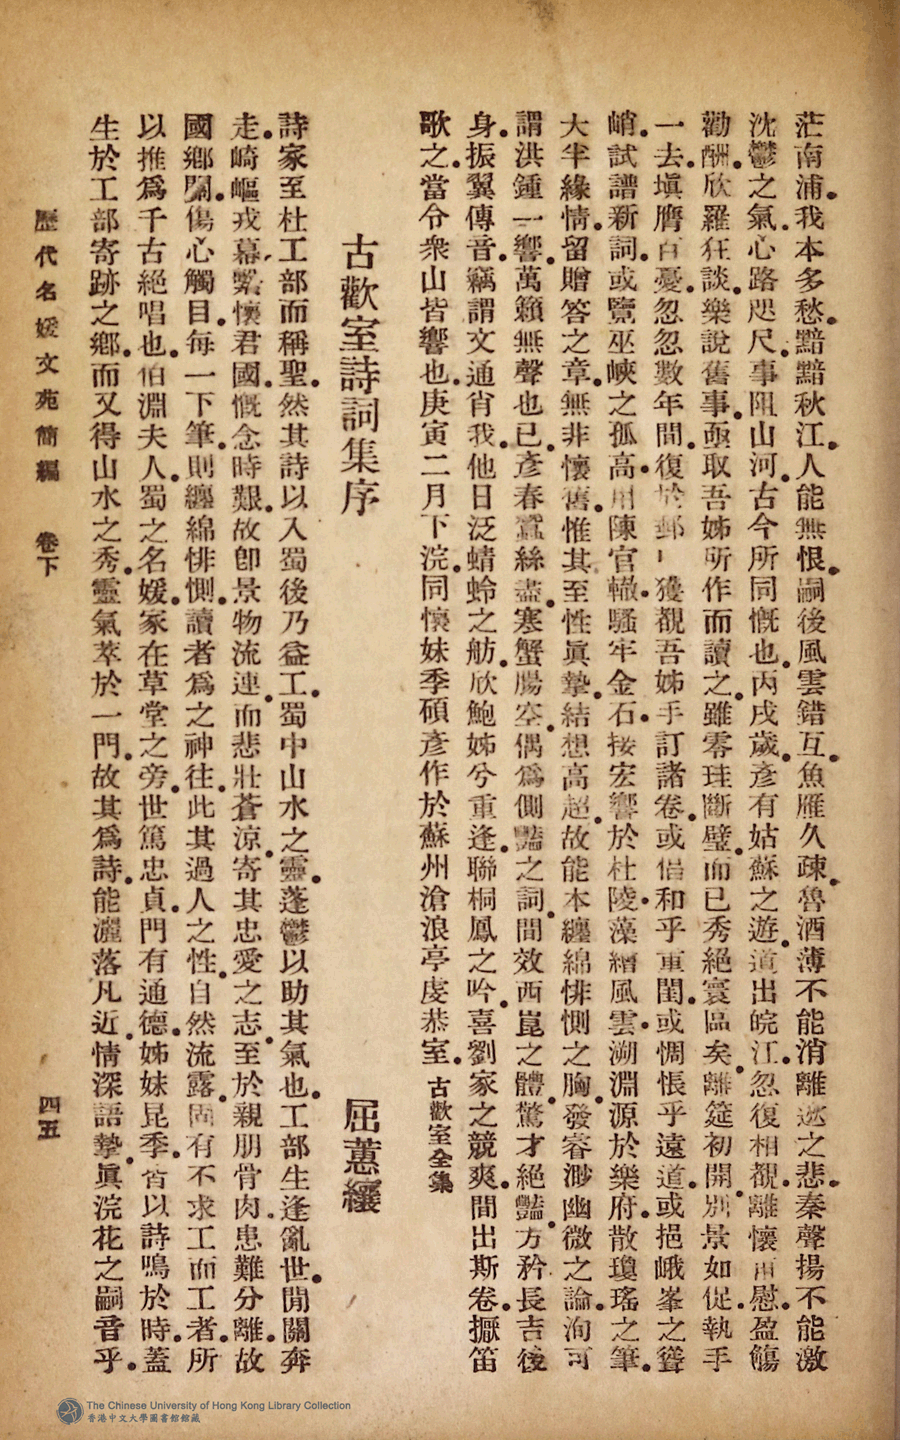 茫南浦。我本多愁。黯黯秋江。人能無恨。嗣後風雲錯互。魚雁久疎。魯酒薄不能消離逖之悲。秦聲揚不能激
沈鬱之氣。心路咫尺。事阻山河。古今所同慨也。丙戌歲。彥有姑蘇之遊。道出皖江。忽復相覩。離懷甫慰。盈觴
勸酬。欣羅狂談。樂說舊事。亟取吾姊所作而讀之。雖零珪斷璧。而已秀絕寰區矣。離筵初開。別景如促。執手
一去。塡膺百憂。忽忽數年間。復於郵中獲覩吾姊手訂諸卷。或倡和乎重閨。或惆悵乎遠道。或挹峨峯之聳
峭。試譜新詞。或覽巫峽之孤高。用陳官轍。騷牢金石。接宏響於杜陵。藻繪風雲。溯淵源於樂府。散瓊瑤之筆。
大半緣情。留贈答之章。無非懷舊。惟其至性眞摯。結想高超。故能本纏綿悱惻之胸。發窅渺幽微之論。洵可
謂洪鍾一響。萬籟無聲也。已。彥春蠶絲盡。寒蟹腸空。偶爲側豔之詞。間效西崑之體。驚才絕豔。方矜長吉後
身。振翼傳音。竊謂文通肖我。他日泛蜻蛉之舫。欣鮑姊兮重逢。聯桐鳳之吟。喜劉家之競爽。間出斯卷。擫笛
歌之。當令衆山皆響也。庚寅二月下浣。同懷妹季碩彥作於蘇州滄浪亭虔恭室。古歡室全集
古歡室詩詞集序 屈蕙纕
詩家至杜工部而稱聖。然其詩以入蜀後乃益工。蜀中山水之靈。蓬鬱以助其氣也。工部生逢亂世。閒關奔
走。崎嶇戎幕。繫懷君國。慨念時艱。故卽景物流連。而悲壯蒼涼。寄其忠愛之志。至於親朋骨肉。患難分離。故
國鄉關。傷心觸目。每一下筆。則纏綿悱惻。讀者爲之神往。此其過人之性。自然流露。固有不求工而工者。所
以推爲千古絕唱也。伯淵夫人。蜀之名媛。家在草堂之旁。世篤忠貞。門有通德。姊妹昆季。皆以詩鳴於時。蓋
生於工部寄跡之鄉。而又得山水之秀。靈氣萃於一門。故其爲詩。能灑落凡近。情深語摯。眞浣花之嗣音乎。
歷代名媛文苑簡編 卷下 四五
The Chinese University of Hong Kong Library Collection
香港中文大學圖書館館藏